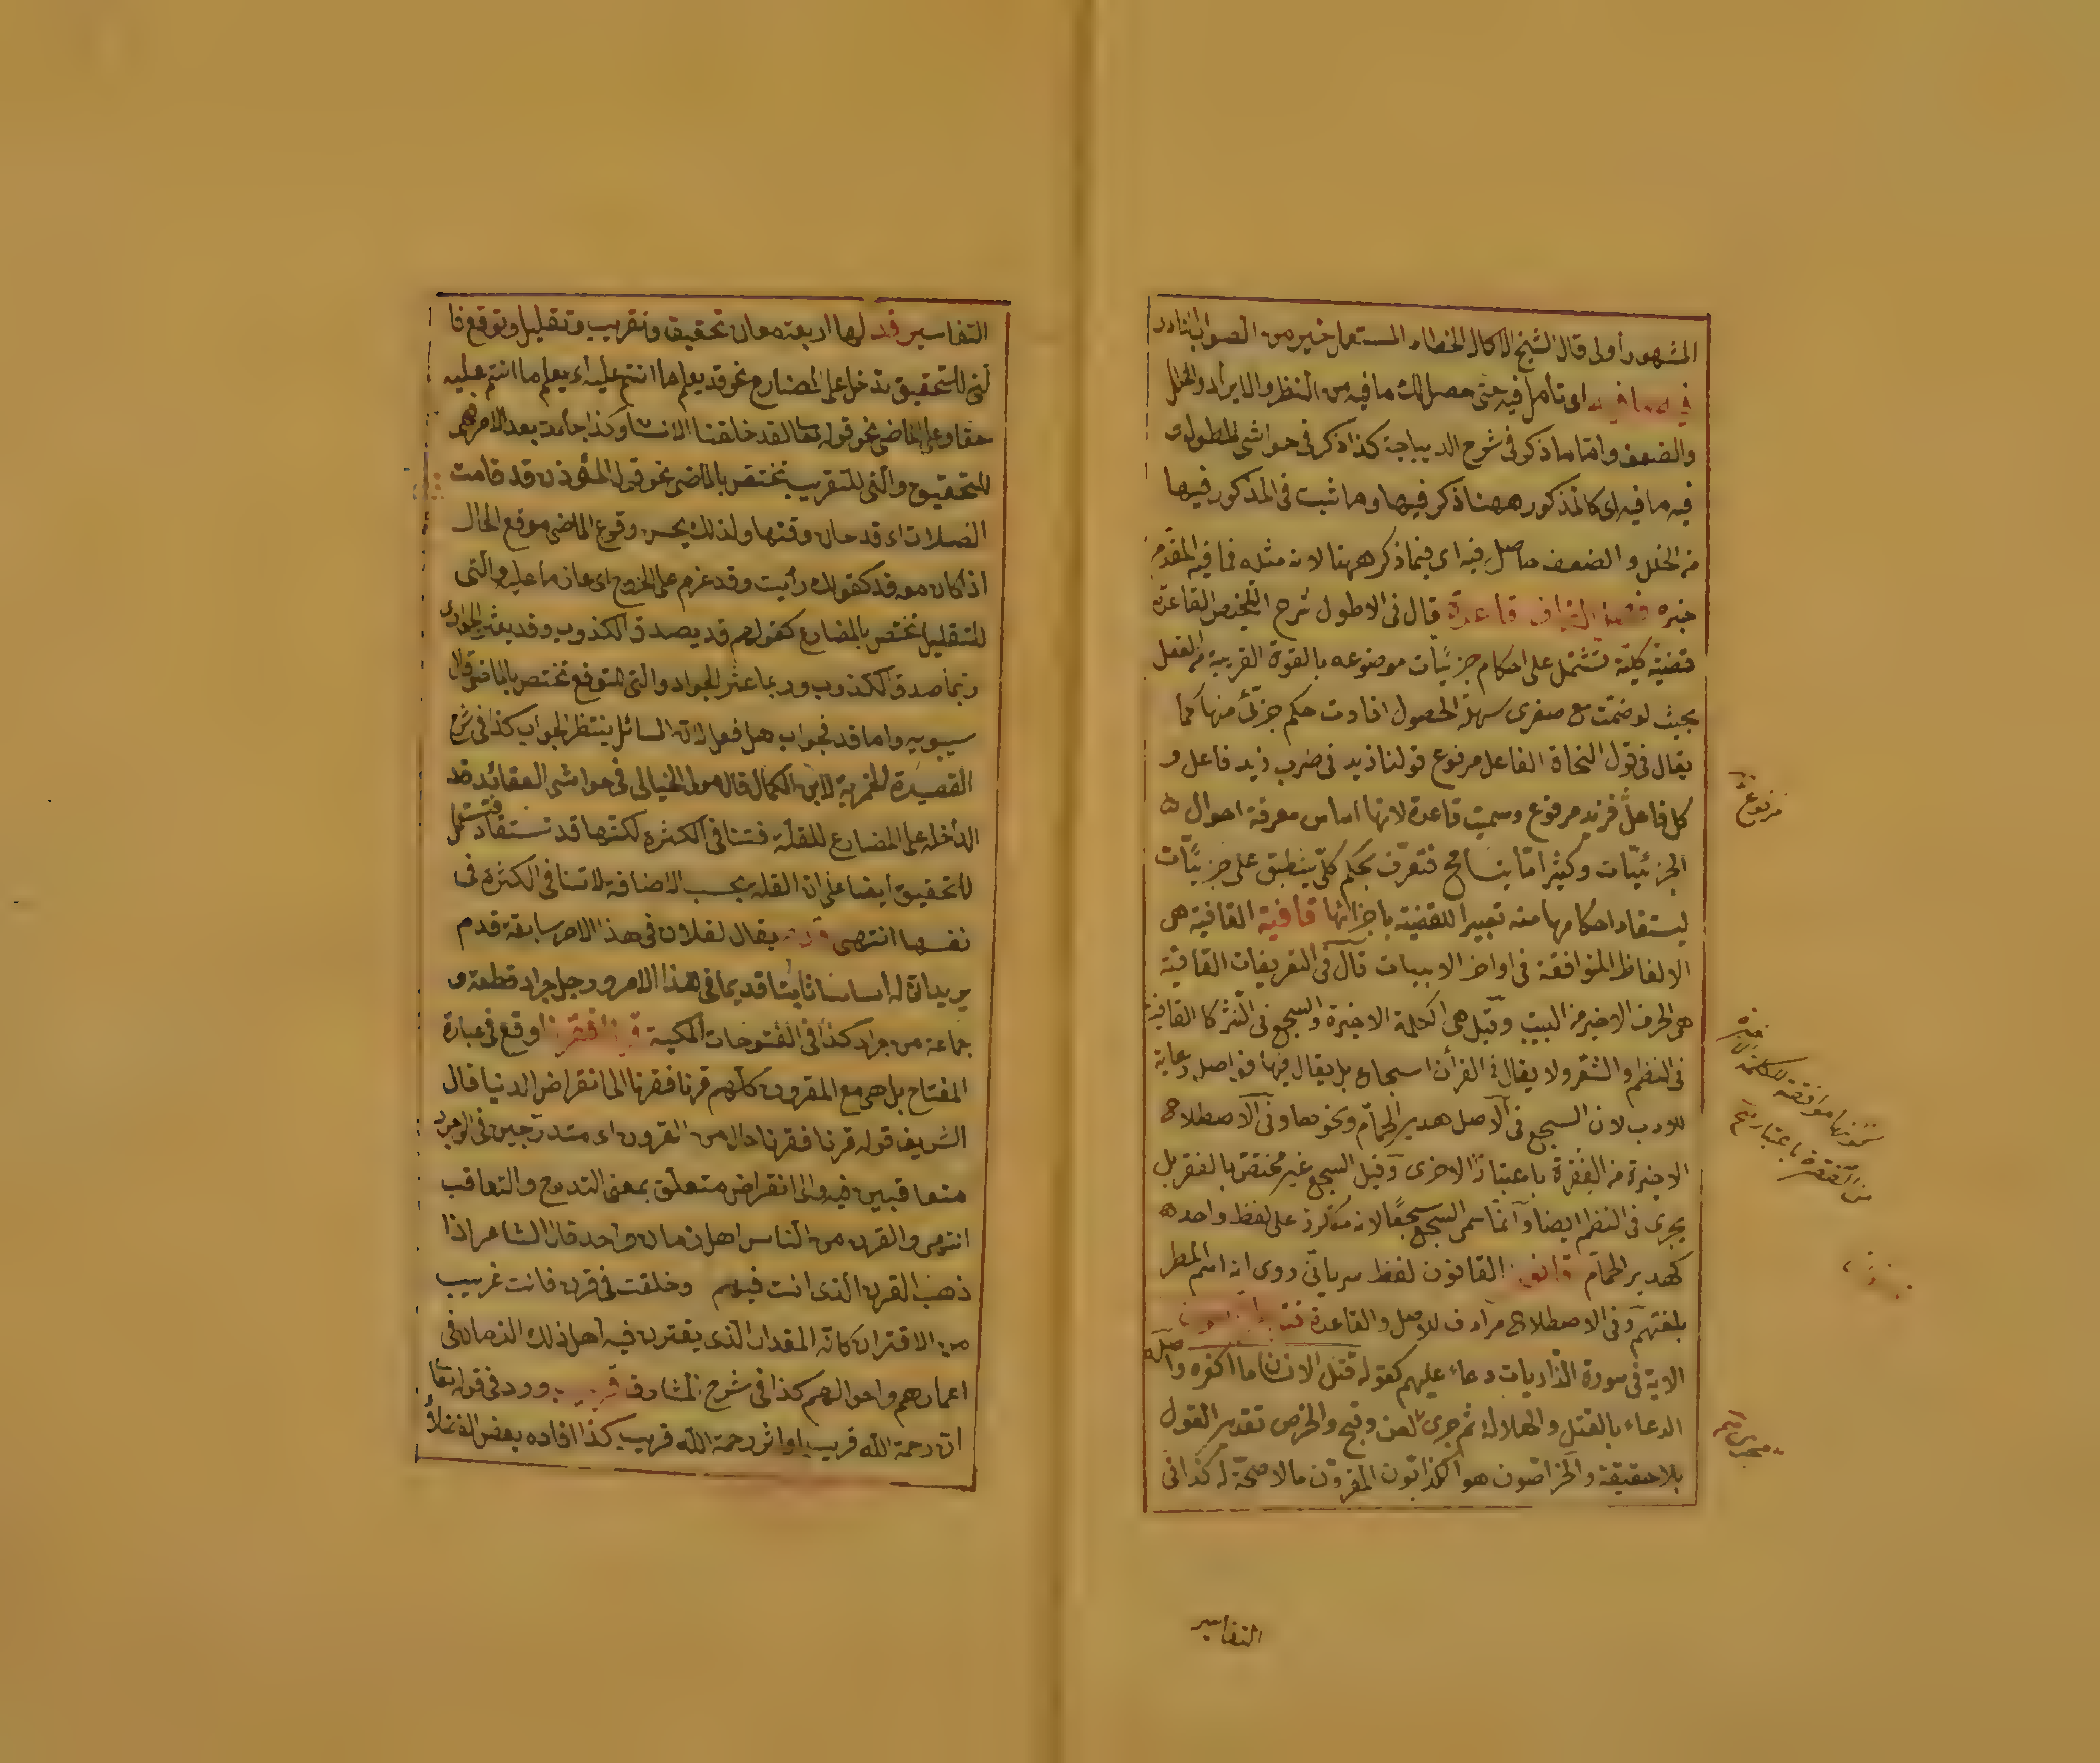 المشهور أولى قال الشيخ الاكال الخطاء المستعمل خير من الصواب النادر
فيه ما فيه اى تأمل فيه حتى حصل لك ما فيه من النظر والايراد والخلل
والضعف واما ما ذكر فى شرح الديباجة كذا ذكر فى حواشى المطول و
فيه ما فيه اى كالمذكور ههنا ذكر فيها وما ثبت فى المذكور فيها
من الخلل والضعف حاصل فيه اى فيما ذكر ههنا لان مثله فما فيه المقدم
خبره قاعدة قال فى الاطول شرح التلخيص القاعدة
قضية كلية تشتمل على احكام جزئيات موضوعه بالقوة القريبة من الفعل
بحيث لو ضمت مع صغرى سهلة الحصول افادت حكم جزئى منها كما
يقال فى قول النحاة الفاعل مرفوع قولنا زيد فى ضرب زيد فاعل و
كل فاعل فزيد مرفوع وسميت قاعدة لانها اساس معرفة احوال
الجزئيات وكثيرا ما يتسامح فتعرف بحكم كلى ينطبق على جزئيات
ليستفاد احكامها منه تعبيرا للقضية باجزائها قافية القافية هى
الالفاظ المتوافقة فى اواخر الابيات قال فى التعريفات القافية
هى الحرف الاخير من البيت وقيل هى الكلمة الاخيرة والسجع فى النثر كالقافية
فى النظم والشعر ولا يقال فى القرأن اسجاع بل يقال فيها فواصل رعاية
للادب لان السجع فى الاصل هدير الحمام ونحوها وفى الاصطلاح
الاخيرة من الفقرة باعتبار الاخرى وقيل السجع غير مختص بالنثر بل
يجرى فى النظم ايضا وانما سمى السجع سجعا لانه مكرر على لفظ واحد
كهدير الحمام قانون القانون لفظ سريانى روى انه اسم المسطر
بلغتهم وفى الاصطلاح مرادف للاصل والقاعدة
الاية فى سورة الذاريات دعاء عليهم كقوله قتل الانسان ما اكفره واصله
الدعاء بالقتل والهلاك ثم جرى لعن وقبح والخرص تقدير القول
بلا حقيقة والخراصون هو الكذابون المقررون ما لا صحة له كذا فى
مرفوع
التفاسير
التفاسير قد لها اربعة معان تحقيق وتقريب وتقليل وتوقع فا
لتى للتحقيق تدخل على المضارع نحو قد يعلم ما انتم عليه اى يعلم ما انتم عليه
حقا وعلى الماضى نحو قوله تعا لقد خلقنا الانسان وكذا جاءت بعد الامر فهى
للتحقيق والتى للتقريب تختص بالماضى نحو قول المؤذن قد قامت
الصلات اى قد حان وقتها ولذلك يحسن وقوع الماضى موقع الحال
اذا كان معه قد كقولك رأيت وقد عزم على الخروج اى عازما عليه والتى
للتقليل تختص بالمضارع كقولهم قد يصدق الكذوب وقد يعثر الجواد اى
ربما صدق الكذوب وربما عثر الجواد والتى للتوقع تختص بالماضى قال
سيبويه واما قد فجواب هل فعل لان السائل ينتظر الجواب كذا فى شرح
القصيدة الخمرية لابن الكمال قال مولى الخيالى فى حواشى العقائد قد
الداخلة على المضارع للقلة فتنافى الكثرة لكنها قد تستعمل
للتحقيق ايضا على ان القلة بحسب الاضافة لا تنافى الكثرة فى
نفسها انتهى قدم يقال لفلان فى هذا الامر سابقة قدم
يريد ان له اساسا ثابتا قديما فى هذا الامر ورجل جراد قطعة و
جماعة من جراد كذا فى الفتوحات المكية قرنا فقرنا وقع فى عبارة
المفتاح بل هى مع المقرون كلهم قرنا فقرنا الى انقراض الدنيا قال
الشريف قوله قرنا فقرنا حال من القرون اى متدرجين فى الوجود
متعاقبين فيه والى انقراض متعلق بمعنى التدرج والتعاقب
انتهى والقرن من الناس اهل زمان واحد قال الشاعر اذا
ذهب القرن الذى انت فيهم وخلقت فى قرن فانت غريب
من الاقتران كانه المقدار الذى يقترن فيه اهل ذلك الزمان فى
اعمارهم واحوالهم كذا فى شرح المشارق قريب ورد فى قوله تعا
ان رحمة الله قريب او اثر رحمة الله قريب كذا افاده بعض الفضلاء